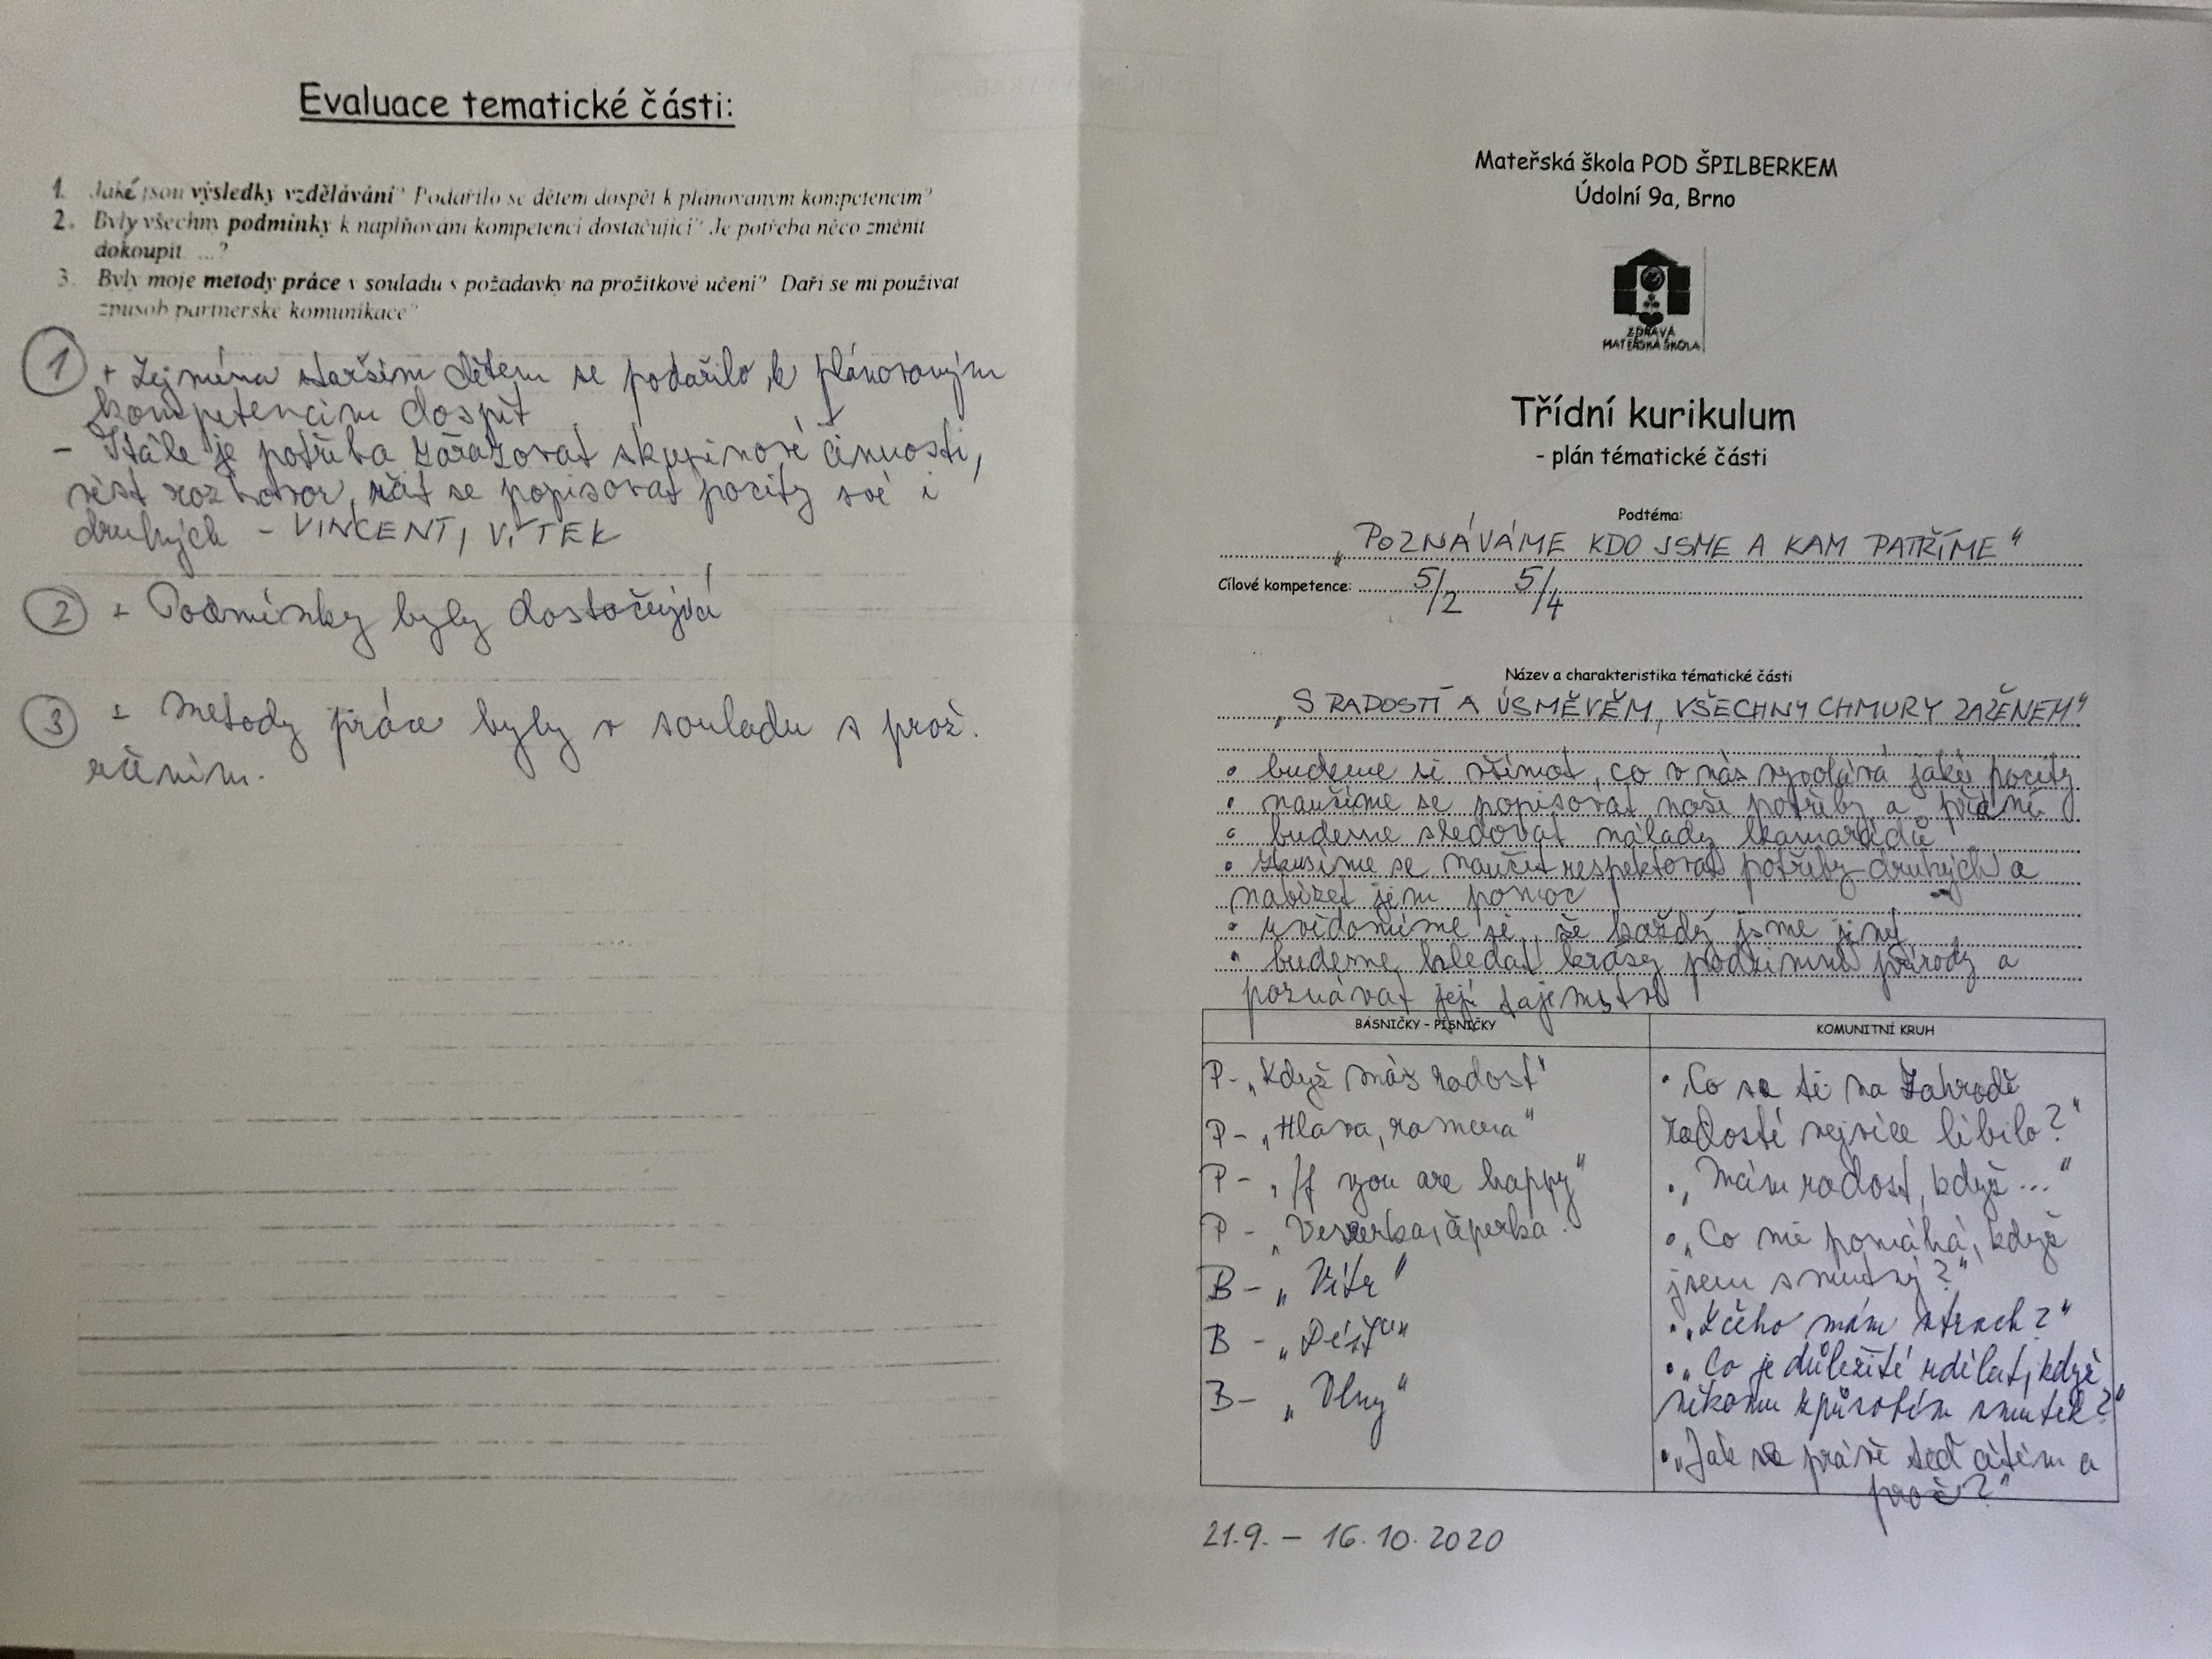 Evaluace tematické části:
1. Jaké jsou výsledky vzdělávání? Podařilo se dětem dospět k plánovaným kompetencím?
2. Byly všechny podmínky k naplňování kompetencí dostačující? Je potřeba něco změnit
dokoupit ...?
3. Byly moje metody práce v souladu s požadavky na prožitkové učení? Daří se mi používat
způsob partnerské komunikace?
1 + Zejména starším dětem se podařilo k plánovaným
kompetencím dospět
- Stále je potřeba zařazovat skupinové činnosti,
vést rozhovor, učit se popisovat pocity své i
druhých - VINCENT, VÍTEK
2 + Podmínky byly dostačující
3 ± Metody práce byly v souladu s prož.
učením.
Mateřská škola POD ŠPILBERKEM
Údolní 9a, Brno
ZDRAVÁ
MATEŘSKÁ ŠKOLA
Třídní kurikulum
- plán tématické části
Podtéma:
„POZNÁVÁME KDO JSME A KAM PATŘÍME"
Cílové kompetence: 5/2 5/4
Název a charakteristika tématické části
„S RADOSTÍ A ÚSMĚVĚM, VŠECHNY CHMURY ZAŽENEM"
• budeme si všímat, co v nás vyvolává jaké pocity
• naučíme se popisovat naše potřeby a přání
• budeme sledovat nálady kamarádů
• zkusíme se naučit respektovat potřeby druhých a
nabízet jim pomoc
• uvědomíme si, že každý jsme jiný
• budeme hledat krásy podzimní přírody a
poznávat její tajemství
BÁSNIČKY - PÍSNIČKY
P- „Když máš radost"
P- „Hlava, ramena"
P- „If you are happy"
P - „Veverka čiperka"
B- „Vítr"
B - „Déšť"
B- „Vlny"
KOMUNITNÍ KRUH
• „Co se ti na Zahradě
radosti nejvíce líbilo?"
• „Mám radost, když..."
• „Co mi pomáhá, když
jsem smutný?"
• „Z čeho mám strach?"
• „Co je důležité udělat, když
někomu způsobím smutek?"
• „Jak se právě teď cítím a
proč?"
21.9. - 16.10.2020